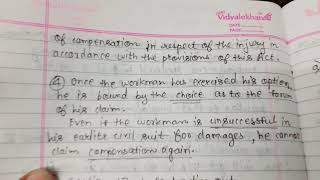 Vidyalekhan
DATE
PAGE
of compensation in respect of the injury in
accordance with the provisions of this Act.
④ Once the workman has exercised his option,
he is bound by the choice as to the forum
of his claim.
Even if the workman is unsuccessful in
his earlier civil suit for damages, he cannot
claim compensation again.